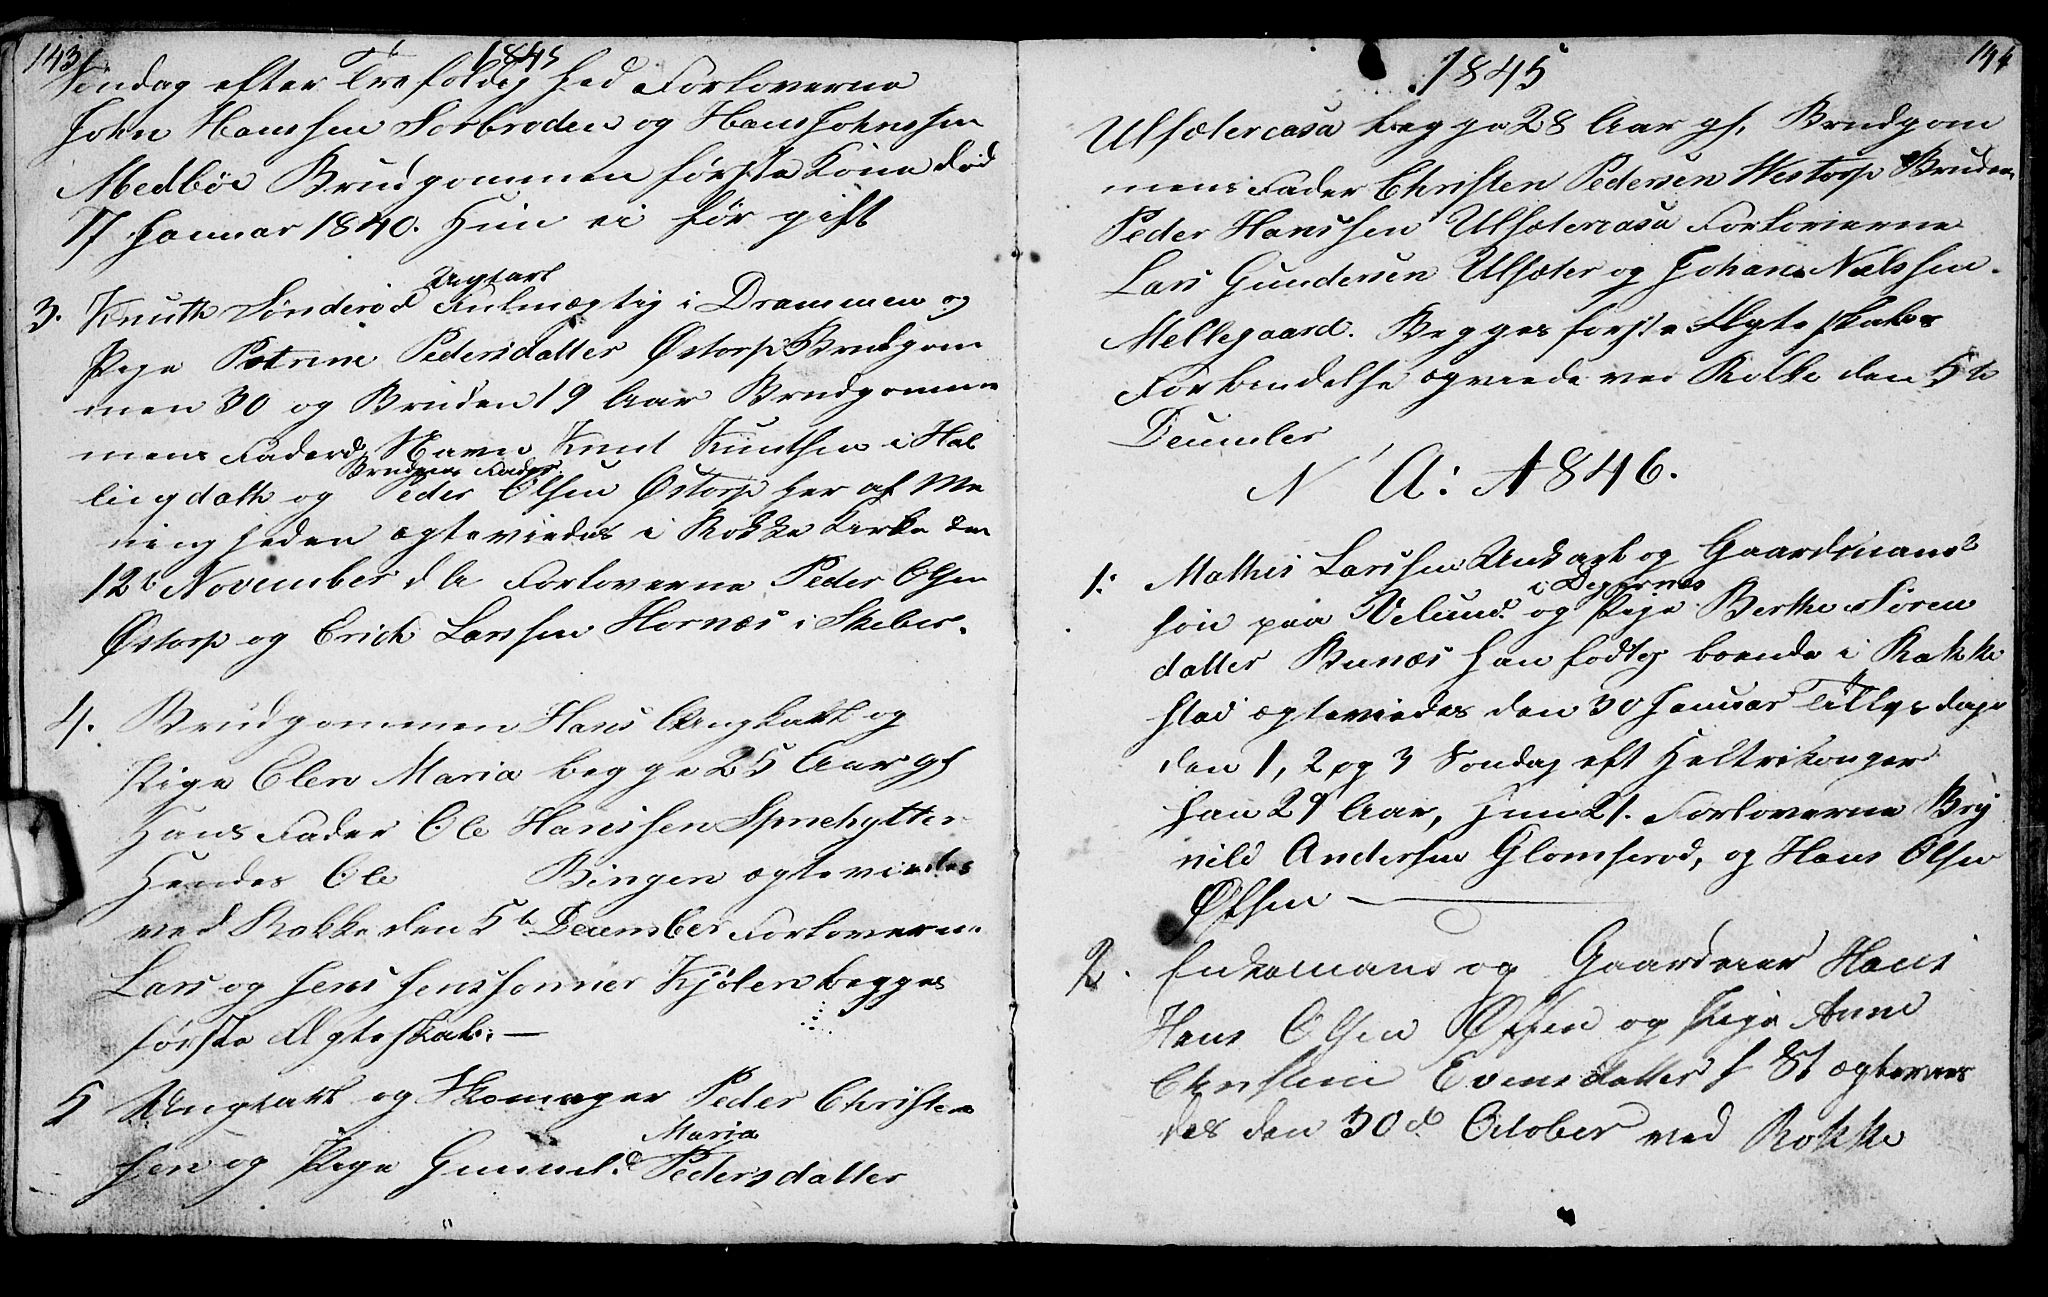 143
1845
Søndag efter Trefoldig hed Forloverne
John Hanssen Sorbroden og Hans Johnssen
Medbøe Brudgommen første Kone død
17 Januar 1840. Hun ei før gift
Ungkarl
3. Knuth Sønderød Fulmægtig i Drammen og
Pige Petrine Pedersdatter Østorp Brudgom
men 30 og Bruden 19 Aar Brudgomme
mens Faders Navn Knud Knudsen i Hal
Brudens Fader
lingdahl og Peder Olsen Østorp her af Me
nigheden ægteviedes i Rokke Kirke den
12te November d A Forloverne Peder Olsen
Østorp og Erich Larssen Hornæs i Skeber.
4. Brudgommen Hans Ungkarl og
Pige Olen Maria begge 25 Aar gl
Hans Fader Ole Hanssen
Hendes Ole Bingen ægteviedes
ved Rokke den 5te December Forloverne
Lars og Jens Jenssønner Kjølen begges
første Ægteskab. —
5 Ungkarl og Skomager Peder Christen
Maria
sen og Pige Gunnild Pedersdatter
144
1845
Ulsætercasa begge 28 Aar gl. Brudgom
mens Fader Christen Pedersen Westorp Brudens
Peder Hanssen Ulsætercasa Forloverne
Lars Gundersen Ulsæter og Johan Nielssen
Mellegaard. Begges første Ægteskabs
Forbindelse ægviede ved Rokke den 5te
December
N A: 1846.
1: Mathis Larssen Unkarl og Gaardmands
i Degernes
søn paa og Pige Berthe Søren
datter Bunæs han født og boende i Rakke
stad ægteviedes den 30 Januar Tillysdage
den 1, 2 og 3 Søndag eft Heltrekonger
han 29 Aar, Hun 21. Forloverne Brý
nild Andersen Glomserød, og Hans Olsen
Ørsen —
2. Enkemand og Gaardeier Hans
Hans Olsen Ørsen og Pige Anne
Christine Evensdatter ægtevies
des den 30d October ved Rokke